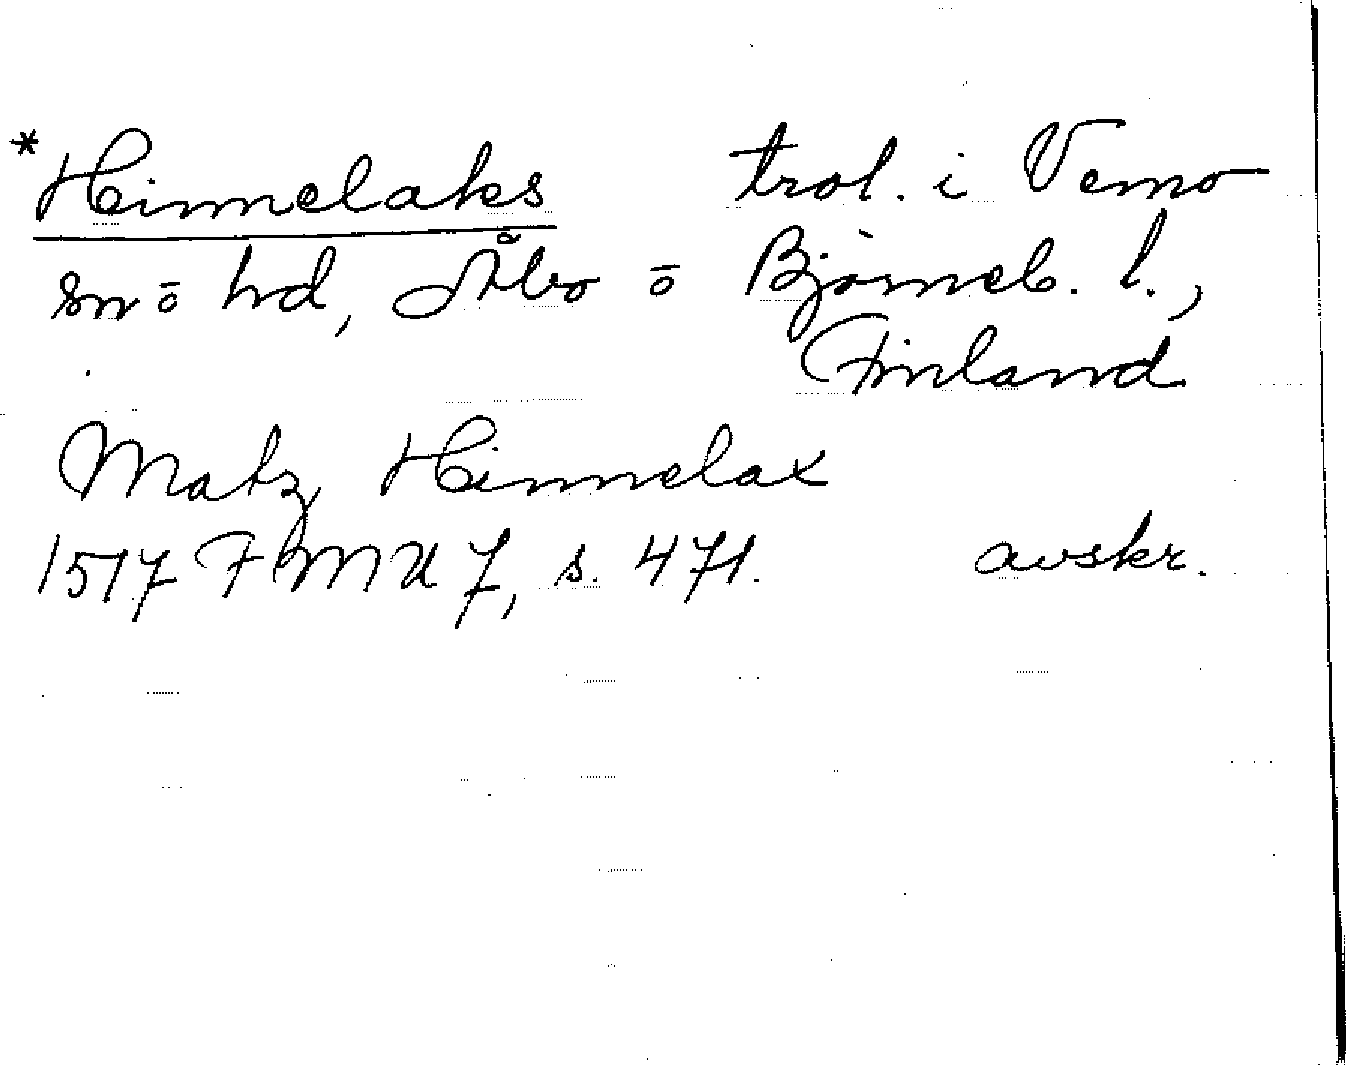 *Hinnelaks trol. i Vemo
sn ō hd, Åbo ō Björneb. l.,
Finland
Matz Hinnelax
1517 FMU 7, s. 471. avskr.